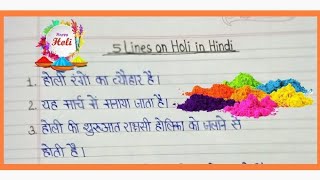 Happy
Holi
5 Lines on Holi in Hindi
1. होली रंगों का त्यौहार है।
2. यह मार्च में मनाया जाता है।
3. होली की शुरुआत राक्षसी होलिका को जलाने से
होती है।